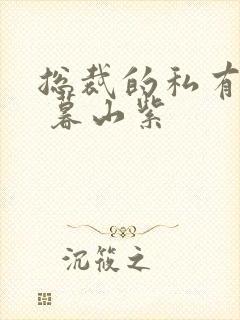 总裁的私有
暮山紫
沉筱之